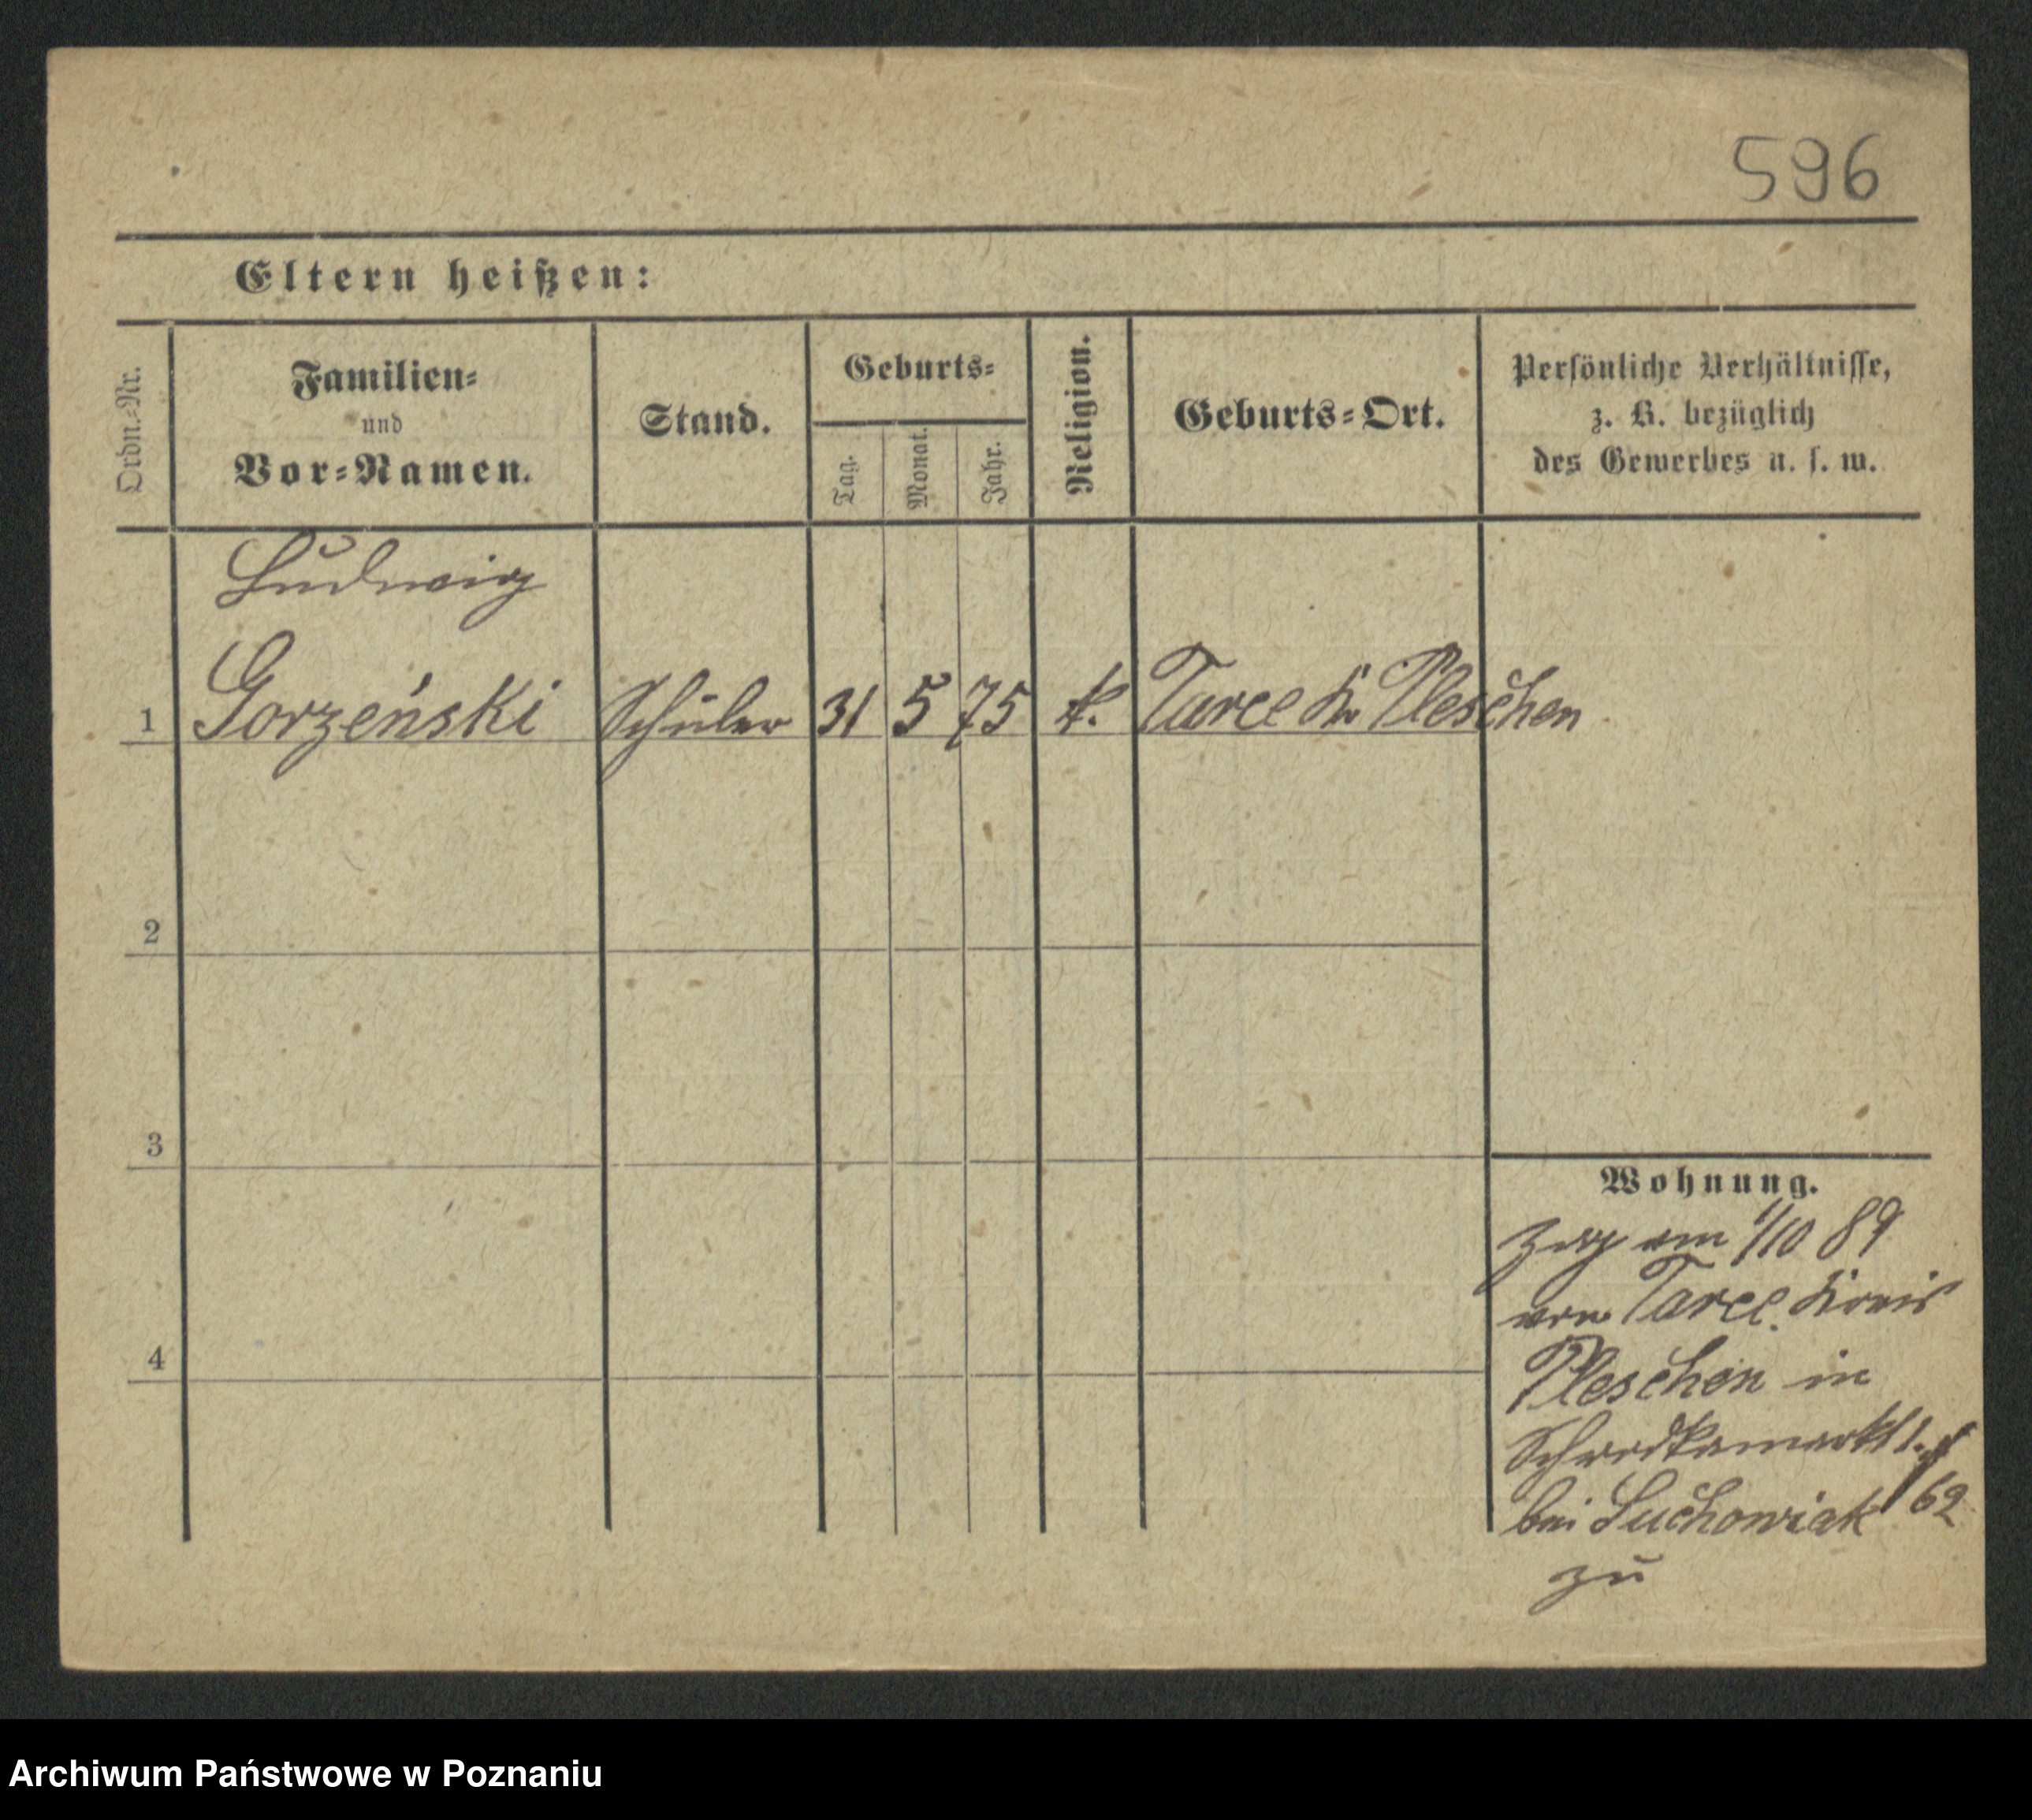 596
Eltern heißen:
Ordn.=Nr.
Familien=
und
Vor=Namen.
Stand.
Geburts=
Tag.
Monat.
Jahr.
Religion.
Geburts=Ort.
Persönliche Verhältnisse,
z. B. bezüglich
des Gewerbes u. s. w.
Ludwig
1 Gorzeński Schüler 31 5 75 k. Tarce Kr Pleschen
2
3
4
Wohnung.
Zog am 1/10 89
von Tarce Kreis
Pleschen in
Schrodkamarkt 1.
bei Suchowiak 62
zu
Archiwum Państwowe w Poznaniu